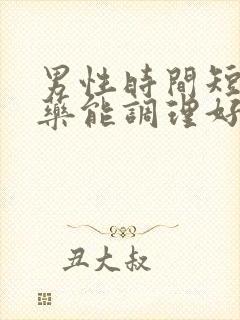 男性時間短
藥能調理好
丑大叔